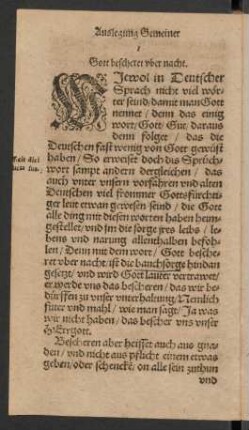 Auslegung Gemeiner
1
Gott bescheret vber nacht.
WJewol in Deutscher
Sprach nicht viel wör-
ter seind damit man Gott
nennet / denn das einig
wort / Gott / Gut / daraus
denn folget / das die
Deutschen fast wenig von Gott gewüst
haben / So erweiset doch dis Sprüch-
wort sampt andern dergleichen / das
auch vnter vnsern vorfahren vnd alten
Deutschen viel frommer Gottsfürchti-
ger leut etwan gewesen seind / die Gott
alle ding mit diesen worten haben heim-
gestellet / vnd jm die sorge jres leibs / le-
bens vnd narung allenthalben befoh-
len / Denn mit dem wort / Gott besche-
ret vber nacht / ist die bauchsorge hindan
gesetzt / vnd wird Gott lauter vertrawet /
er werde vns das bescheren / das wir be-
dürffen zu vnser vnterhaltung / Nemlich
futer vnd mahl / wie man sagt / Ja was
wir nicht haben / das bescher vns vnser
HErrgott.
Bescheren aber heisset auch aus gna-
den / vnd nicht aus pflicht einem etwas
geben / oder schencken / on alle sein zuthun
vnd